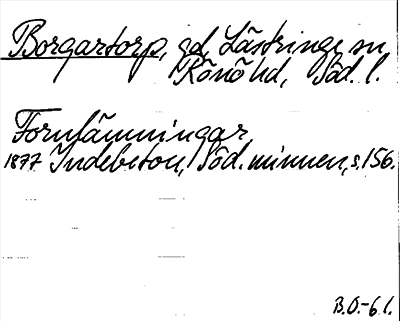 Borgartorp, gd, Lästringe sn,
Rönö hd, Söd. l.
Fornlämningar.
1877 Indebetou, Söd. minnen, s. 156.
B.O.-61.